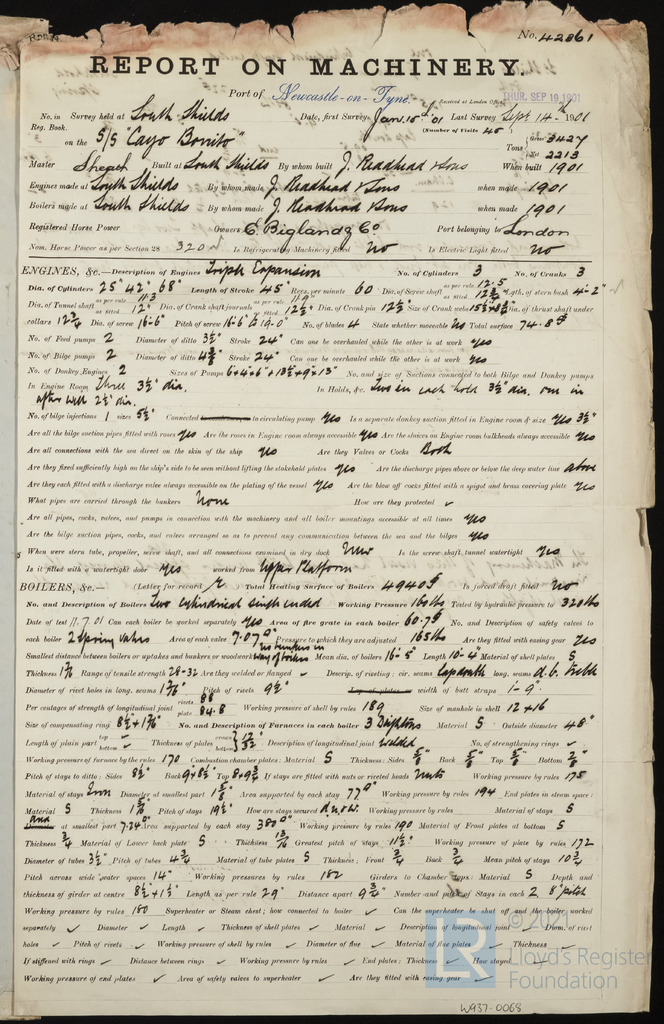 No. 42861
REPORT ON MACHINERY.
Port of Newcastle-on-Tyne
Received at London Office THUR. SEP 19 1901
No. in Survey held at South Shields Date, first Survey Jan. 15th 01 Last Survey Sept 14th 1901
Reg. Book. (Number of Visits 45
on the S/S "Cayo Bonito" Tons Gross 3427 Net 2213
Master Built at South Shields By whom built J. Readhead & Sons When built 1901
Engines made at South Shields By whom made J. Readhead & Sons when made 1901
Boilers made at South Shields By whom made J. Readhead & Sons when made 1901
Registered Horse Power Owners E. Bigland & Co Port belonging to London
Nom. Horse Power as per Section 28 320 Is Refrigerating Machinery fitted No Is Electric Light fitted No
ENGINES, &c.—Description of Engines Triple Expansion No. of Cylinders 3 No. of Cranks 3
Dia. of Cylinders 25" 42" 68" Length of Stroke 45" Revs. per minute 60 Dia. of Screw shaft as per rule 12.5 as fitted 12 3/4" Lgth. of stern bush 4-2"
Dia. of Tunnel shaft as per rule 11.3 as fitted 12" Dia. of Crank shaft journals as per rule 11.9" as fitted 12 1/2" Dia. of Crank pin 12 1/2" Size of Crank webs Dia. of thrust shaft under
collars 12 3/4 Dia. of screw 16-6" Pitch of screw 16-6" to 19-0" No. of blades 4 State whether moveable No Total surface 74.8
No. of Feed pumps 2 Diameter of ditto 3 1/2" Stroke 24" Can one be overhauled while the other is at work yes
No. of Bilge pumps 2 Diameter of ditto 4 3/8" Stroke 24" Can one be overhauled while the other is at work yes
No. of Donkey Engines 2 Sizes of Pumps 6+4+6"+13 1/2+9+13" No. and size of Suctions connected to both Bilge and Donkey pumps
In Engine Room Three 3 1/2" dia. In Holds, &c. Two in each hold 3 1/2" dia. one in
after well 2 1/2" dia.
No. of bilge injections 1 sizes 5 1/2" Connected to circulating pump yes Is a separate donkey suction fitted in Engine room & size yes 3 1/2"
Are all the bilge suction pipes fitted with roses yes Are the roses in Engine room always accessible yes Are the sluices on Engine room bulkheads always accessible yes
Are all connections with the sea direct on the skin of the ship yes Are they Valves or Cocks Both
Are they fixed sufficiently high on the ship's side to be seen without lifting the stokehold plates yes Are the discharge pipes above or below the deep water line above
Are they each fitted with a discharge valve always accessible on the plating of the vessel yes Are the blow off cocks fitted with a spigot and brass covering plate yes
What pipes are carried through the bunkers None How are they protected ✓
Are all pipes, cocks, valves, and pumps in connection with the machinery and all boiler mountings accessible at all times yes
Are the bilge suction pipes, cocks, and valves arranged so as to prevent any communication between the sea and the bilges yes
When were stern tube, propeller, screw shaft, and all connections examined in dry dock New Is the screw shaft tunnel watertight yes
Is it fitted with a watertight door yes worked from Upper Platform
BOILERS, &c.— (Letter for record r Total Heating Surface of Boilers 4940 Is forced draft fitted no
No. and Description of Boilers Two cylindrical single ended Working Pressure 160 lbs Tested by hydraulic pressure to 320 lbs
Date of test 11.7.01 Can each boiler be worked separately yes Area of fire grate in each boiler 60.75 No. and Description of safety valves to
each boiler 2 Spring valves Area of each valve 7.07 Pressure to which they are adjusted 165 lbs Are they fitted with easing gear yes
Smallest distance between boilers or uptakes and bunkers or woodwork no bunkers in way of boilers Mean dia. of boilers 16-5" Length 10-4" Material of shell plates S
Thickness Range of tensile strength 28-32 Are they welded or flanged ✓ Descrip. of riveting: cir. seams Lap double long. seams d.b. treble
Diameter of rivet holes in long. seams Pitch of rivets 9 1/2" Lap of plates or width of butt straps 1-9"
Per centages of strength of longitudinal joint rivets 88 plate 84.8 Working pressure of shell by rules 189 Size of manhole in shell 12+16
Size of compensating ring No. and Description of Furnaces in each boiler 3 Deightons Material S Outside diameter 48"
Length of plain part top bottom Thickness of plates crown bottom Description of longitudinal joint welded No. of strengthening rings ✓
Working pressure of furnace by the rules 170 Combustion chamber plates: Material S Thickness: Sides 5/8 Back 5/8 Top 5/8 Bottom
Pitch of stays to ditto: Sides 8 1/2" Back 9+8 1/2" Top 8+9 3/4 If stays are fitted with nuts or riveted heads Nuts Working pressure by rules 175
Material of stays Iron Diameter at smallest part Area supported by each stay 77 Working pressure by rules 194 End plates in steam space:
Material S Thickness Pitch of stays 19 1/2" How are stays secured d.n.&w. Working pressure by rules Material of stays S
at smallest part 7.24 Area supported by each stay 380 Working pressure by rules 190 Material of Front plates at bottom S
Thickness 3/4 Material of Lower back plate S Thickness 13/16 Greatest pitch of stays 11 1/2" Working pressure of plate by rules 172
Diameter of tubes 3 1/2" Pitch of tubes 4 3/4 Material of tube plates S Thickness: Front 3/4 Back 3/4 Mean pitch of stays 10 3/4
Pitch across wide water spaces 14" Working pressures by rules 182 Girders to Chamber tops: Material S Depth and
thickness of girder at centre 8 1/2+1 1/2 Length as per rule 29" Distance apart 9 3/4" Number and pitch of Stays in each 2 8" pitch
Working pressure by rules 180 Superheater or Steam chest; how connected to boiler ✓ Can the superheater be shut off and the boiler worked
separately ✓ Diameter ✓ Length ✓ Thickness of shell plates ✓ Material ✓ Description of longitudinal joint ✓ Diam. of rivet
holes ✓ Pitch of rivets ✓ Working pressure of shell by rules ✓ Diameter of flue ✓ Material of flue plates ✓ Thickness
If stiffened with rings ✓ Distance between rings ✓ Working pressure by rules ✓ End plates: Thickness ✓ How stayed
Working pressure of end plates ✓ Area of safety valves to superheater ✓ Are they fitted with easing gear ✓
LR © 2021
Lloyd's Register
Foundation
W937-0068